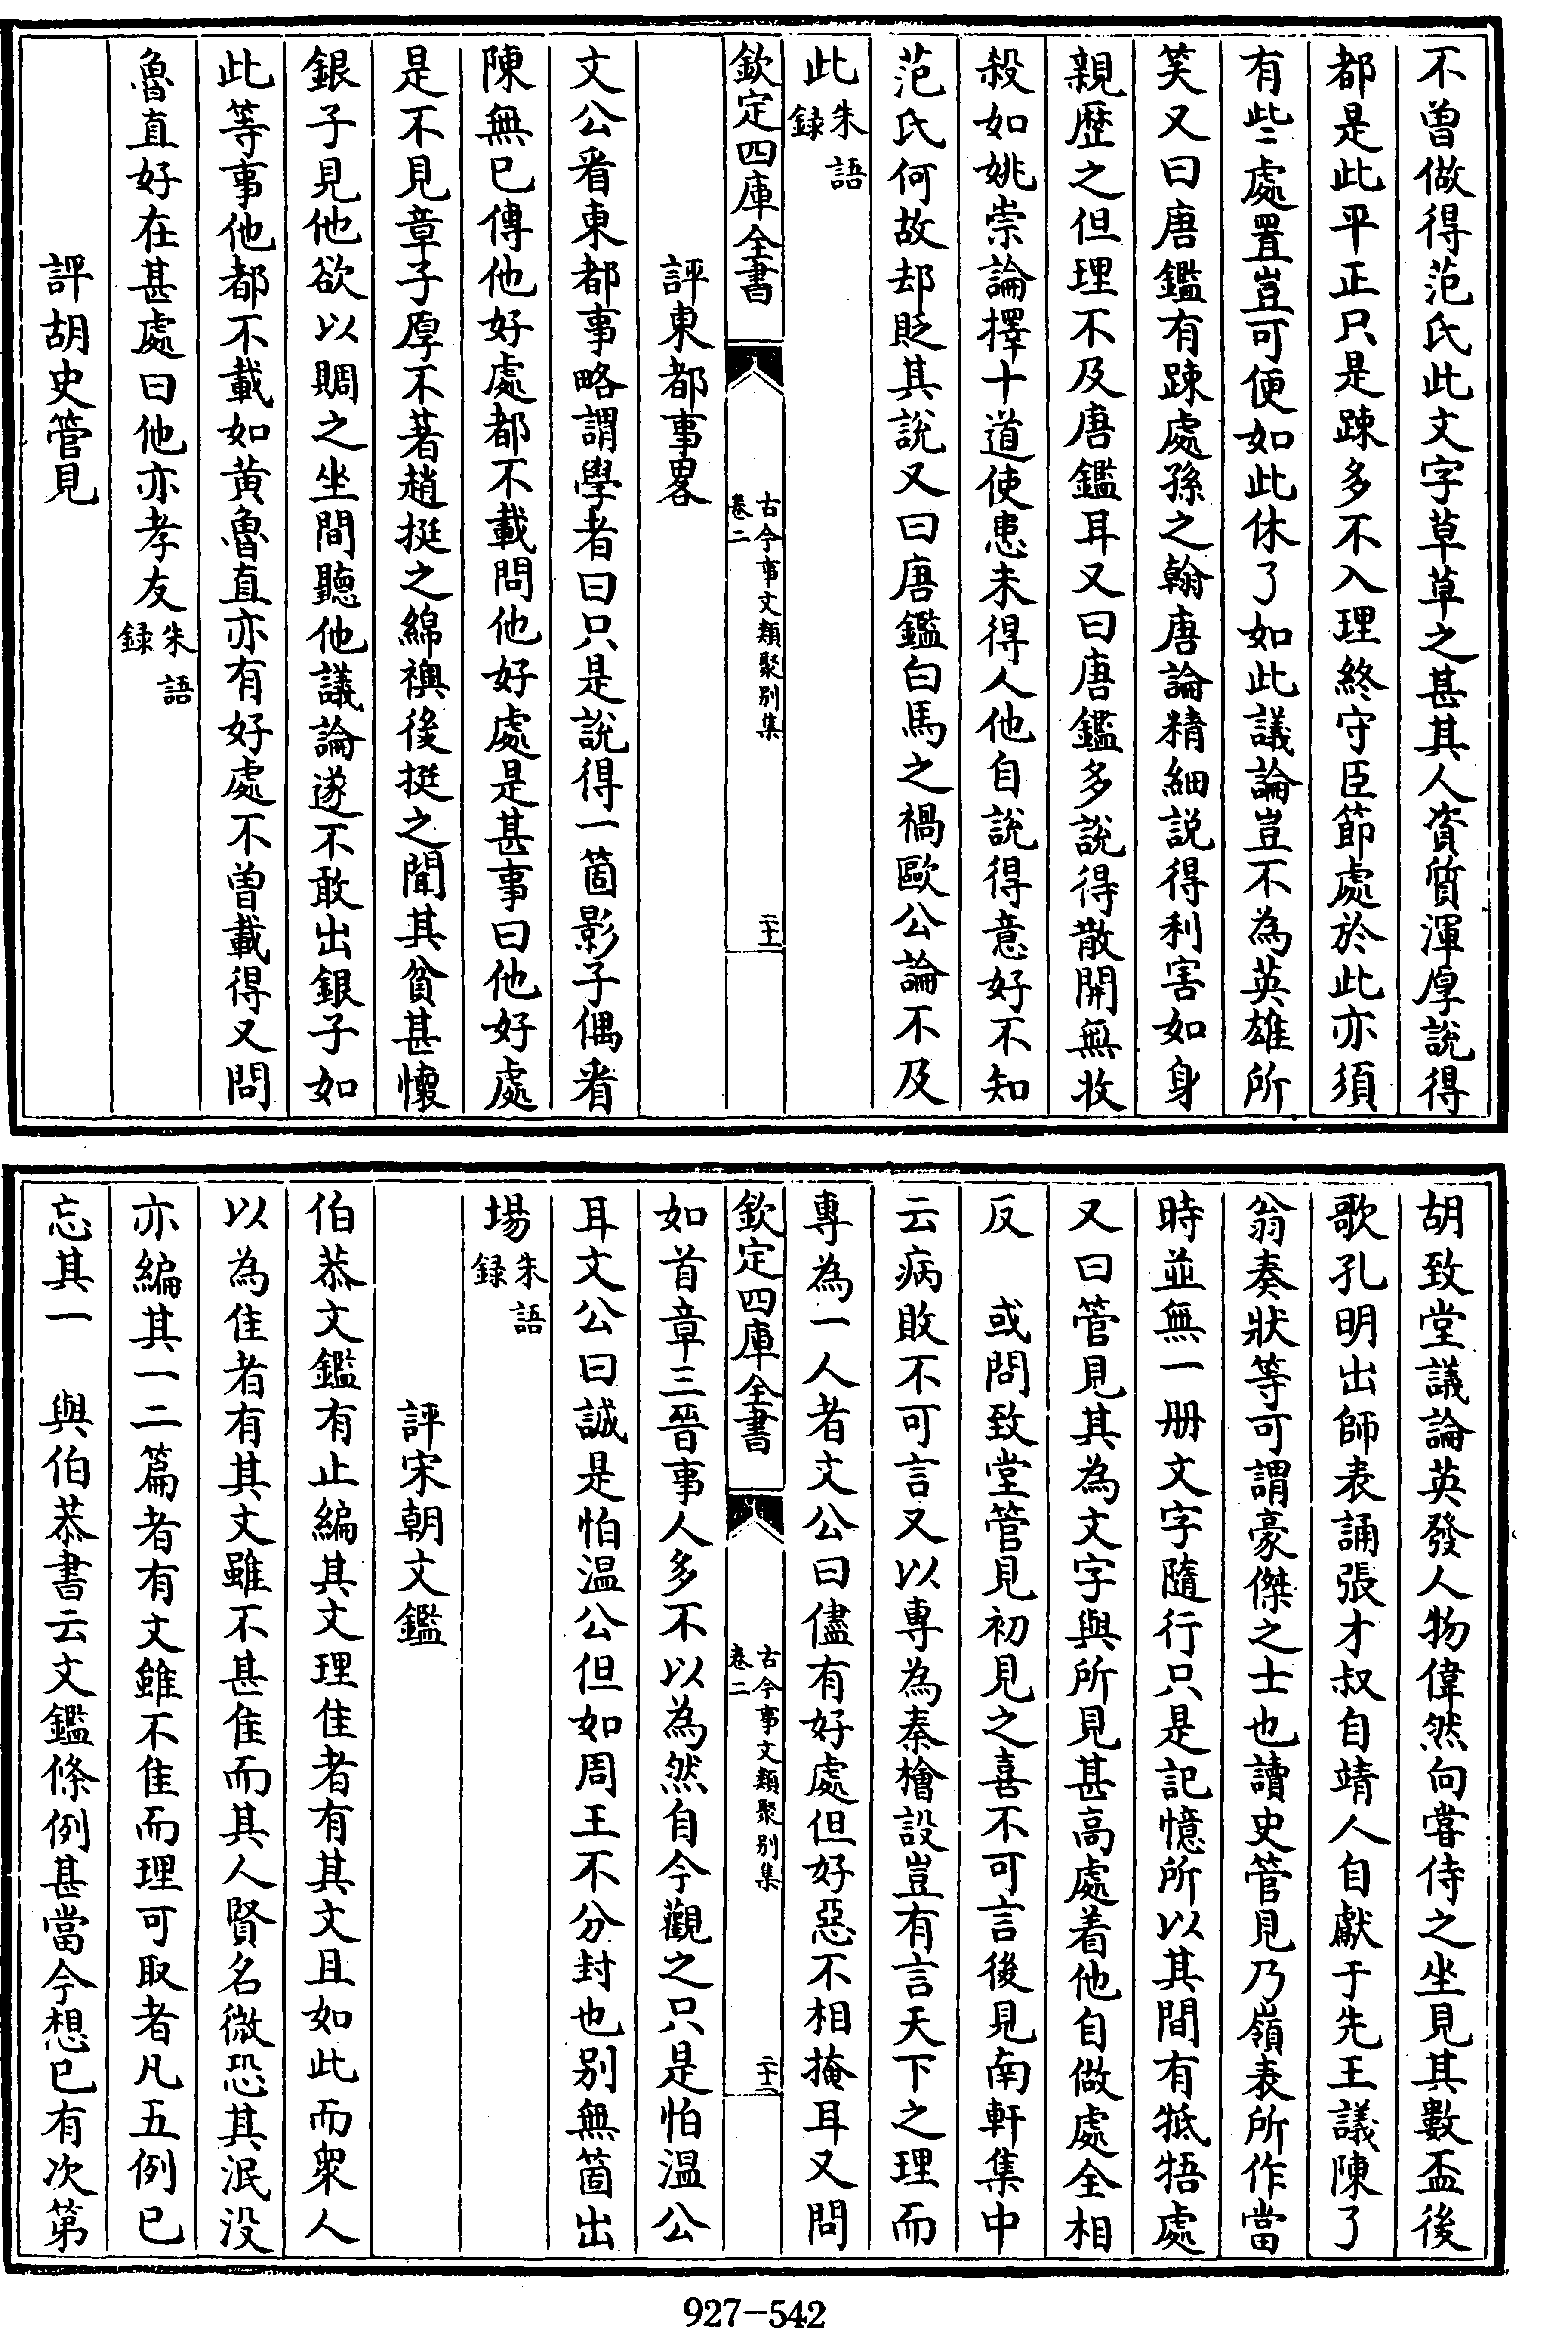 不曽做得范氏此文字草草之甚其人資質渾厚說得
都是此平正只是踈多不入理終守臣節處於此亦須
有些處置豈可便如此休了如此議論豈不為英雄所
笑又曰唐鑑有踈處孫之翰唐論精細説得利害如身
親歴之但理不及唐鑑耳又曰唐鑑多說得散開無收
殺如姚崇論擇十道使患未得人他自說得意好不知
范氏何故却貶其說又曰唐鑑白馬之禍歐公論不及
此朱語錄
欽定四庫全書
古今事文類聚别集
卷二
二十一
評東都事畧
文公看東都事略謂學者曰只是說得一箇影子偶看
陳無已傳他好處都不載問他好處是甚事曰他好處
是不見章子厚不著趙挺之綿襖後挺之聞其貧甚懷
銀子見他欲以賙之坐間聽他議論遂不敢出銀子如
此等事他都不載如黄魯直亦有好處不曽載得又問
魯直好在甚處曰他亦孝友朱語錄
評胡史管見
胡致堂議論英發人物偉然向嘗侍之坐見其數盃後
歌孔明出師表誦張才叔自靖人自獻于先王議陳了
翁奏狀等可謂豪傑之士也讀史管見乃嶺表所作當
時並無一册文字隨行只是記憶所以其間有牴牾處
又曰管見其為文字與所見甚高處着他自做處全相
反　或問致堂管見初見之喜不可言後見南軒集中
云病敗不可言又以專為秦檜設豈有言天下之理而
專為一人者文公曰儘有好處但好惡不相掩耳又問
欽定四庫全書
古今事文類聚别集
卷二
二十二
如首章三晉事人多不以為然自今觀之只是怕温公
耳文公曰誠是怕温公但如周王不分封也别無箇出
場朱語錄
評宋朝文鑑
伯恭文鑑有止編其文理佳者有其文且如此而衆人
以為佳者有其文雖不甚佳而其人賢名微恐其泯没
亦編其一二篇者有文雖不佳而理可取者凡五例已
忘其一　與伯恭書云文鑑條例甚當今想已有次第
927-542